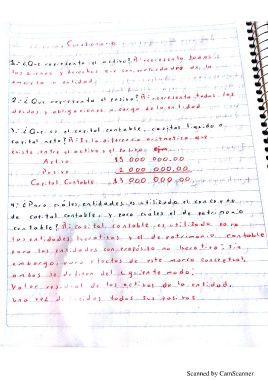 Cuestionario
1.- ¿Que representa el activo? R: representa todos
los bienes y derechos que son propiedades de la
empresa o entidad.
2.- ¿Que representa el pasivo? R: representa todas las
deudas y obligaciones a cargo de la entidad
3.- ¿Que es el capital contable, capital liquido o
capital neto? R: Es la diferencia aritmetica que
existe entre el activo y el pasivo.
Activo $5 000 000.00
Pasivo 2 000 000.00
Capital Contable $3 000 000.00
4.- ¿Para cuáles entidades es utilizado el concepto
de capital contable, y para cuáles el de patrimonio
contable? R: Capital contable es utilizado para
las entidades lucrativas y el de patrimonio contable
para las entidades con propósito no lucrativo; sin
embargo, para efectos de este marco conceptual,
ambos se definen del siguiente modo:
Valor residual de los activos de la entidad,
una vez deducidos todos sus pasivos.
Scanned by CamScanner